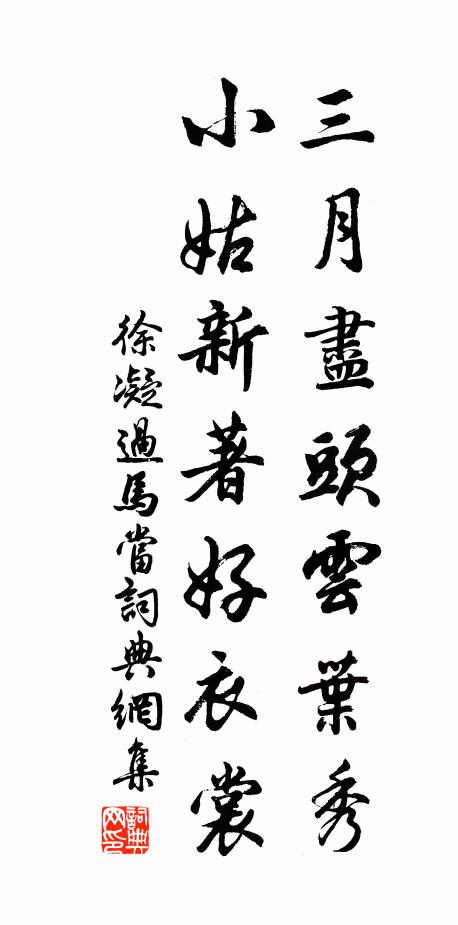 三月盡頭雲葉秀
小姑新著好衣裳
徐凝過馬當詞典網集
詞典网印